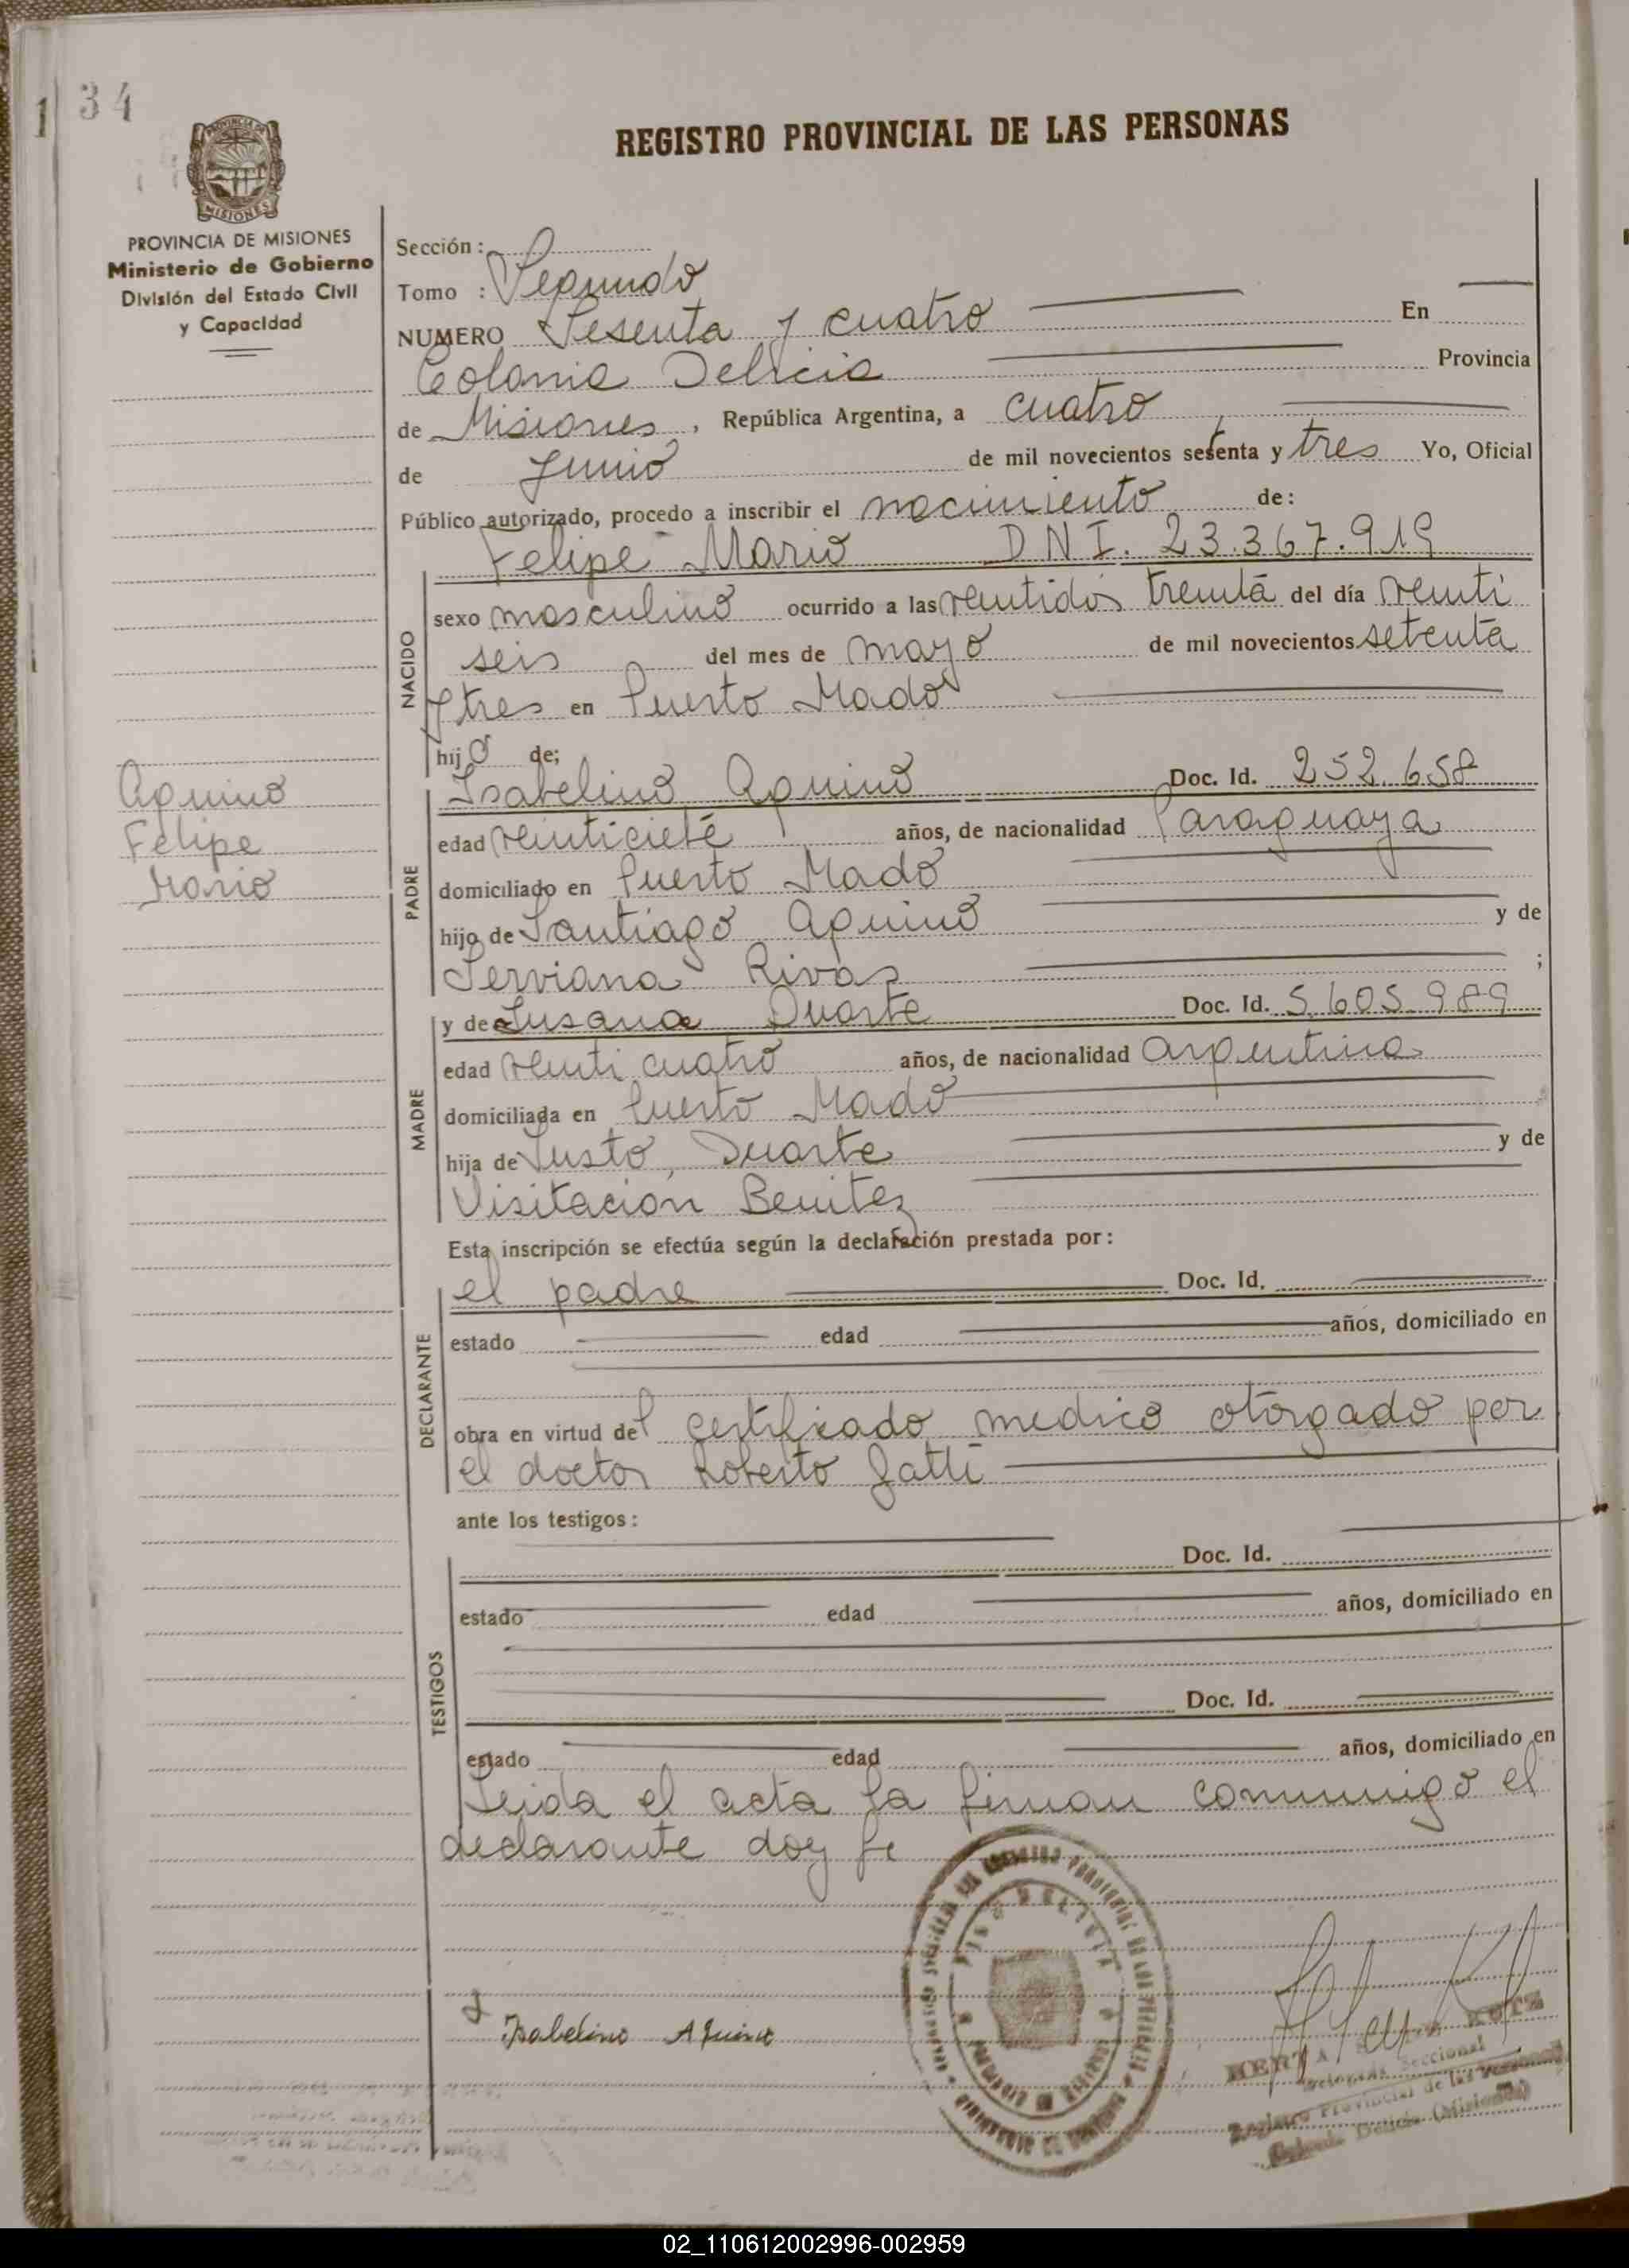 1 34
REGISTRO PROVINCIAL DE LAS PERSONAS
PROVINCIA DE
MISIONES
PROVINCIA DE MISIONES
Ministerio de Gobierno
División del Estado Civil
y Capacidad
Sección :
Tomo : Segundo
NUMERO Sesenta y cuatro En
Colonia Delicia Provincia
de Misiones, República Argentina, a cuatro
de Junio de mil novecientos setenta y tres Yo, Oficial
Público autorizado, procedo a inscribir el nacimiento de:
Felipe Mario DNI. 23.367.919
NACIDO
sexo masculino ocurrido a las veintidos treinta del día veinti
seis del mes de mayo de mil novecientos setenta
y tres en Puerto Mado
hijo de;
Aquino
Felipe
Mario
PADRE
Isabelino Aquino Doc. Id. 252.658
edad veinticiete años, de nacionalidad Paraguaya
domiciliado en Puerto Mado
hijo de Santiago Aquino y de
Serviana Rivas ;
MADRE
y de Susana Duarte Doc. Id. 5.605.989
edad veinti cuatro años, de nacionalidad argentina
domiciliada en Puerto Mado
hija de Justo Duarte y de
Visitacion Benitez
Esta inscripción se efectúa según la declaración prestada por:
DECLARANTE
el padre Doc. Id.
estado edad años, domiciliado en
obra en virtud del certificado medico otorgado por
el doctor Roberto Gatti
ante los testigos:
TESTIGOS
Doc. Id.
estado edad años, domiciliado en
Doc. Id.
estado edad años, domiciliado en
Leida el acta la firman conmigo el
declarante doy fe
Isabelino Aquino
HERTA KOTZ
Delegada Seccional
Registro Provincial de las Personas
Colonia Delicia (Misiones)
02_110612002996-002959